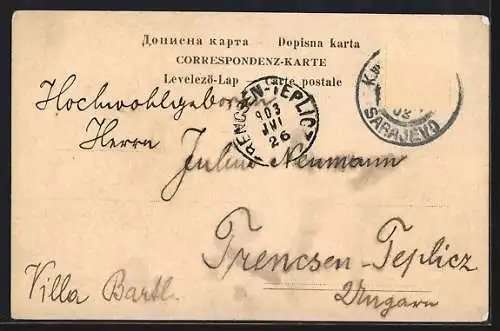 Дописна карта — Dopisna karta
CORRESPONDENZ-KARTE
Levelező-Lap — Carte postale
TRENCSÉN-TEPLIC
903
26
SARAJEVO
Hochwohlgeboren
Herrn
Julius Neumann
Trencsen-Teplicz
Ungarn
Villa Bartl.